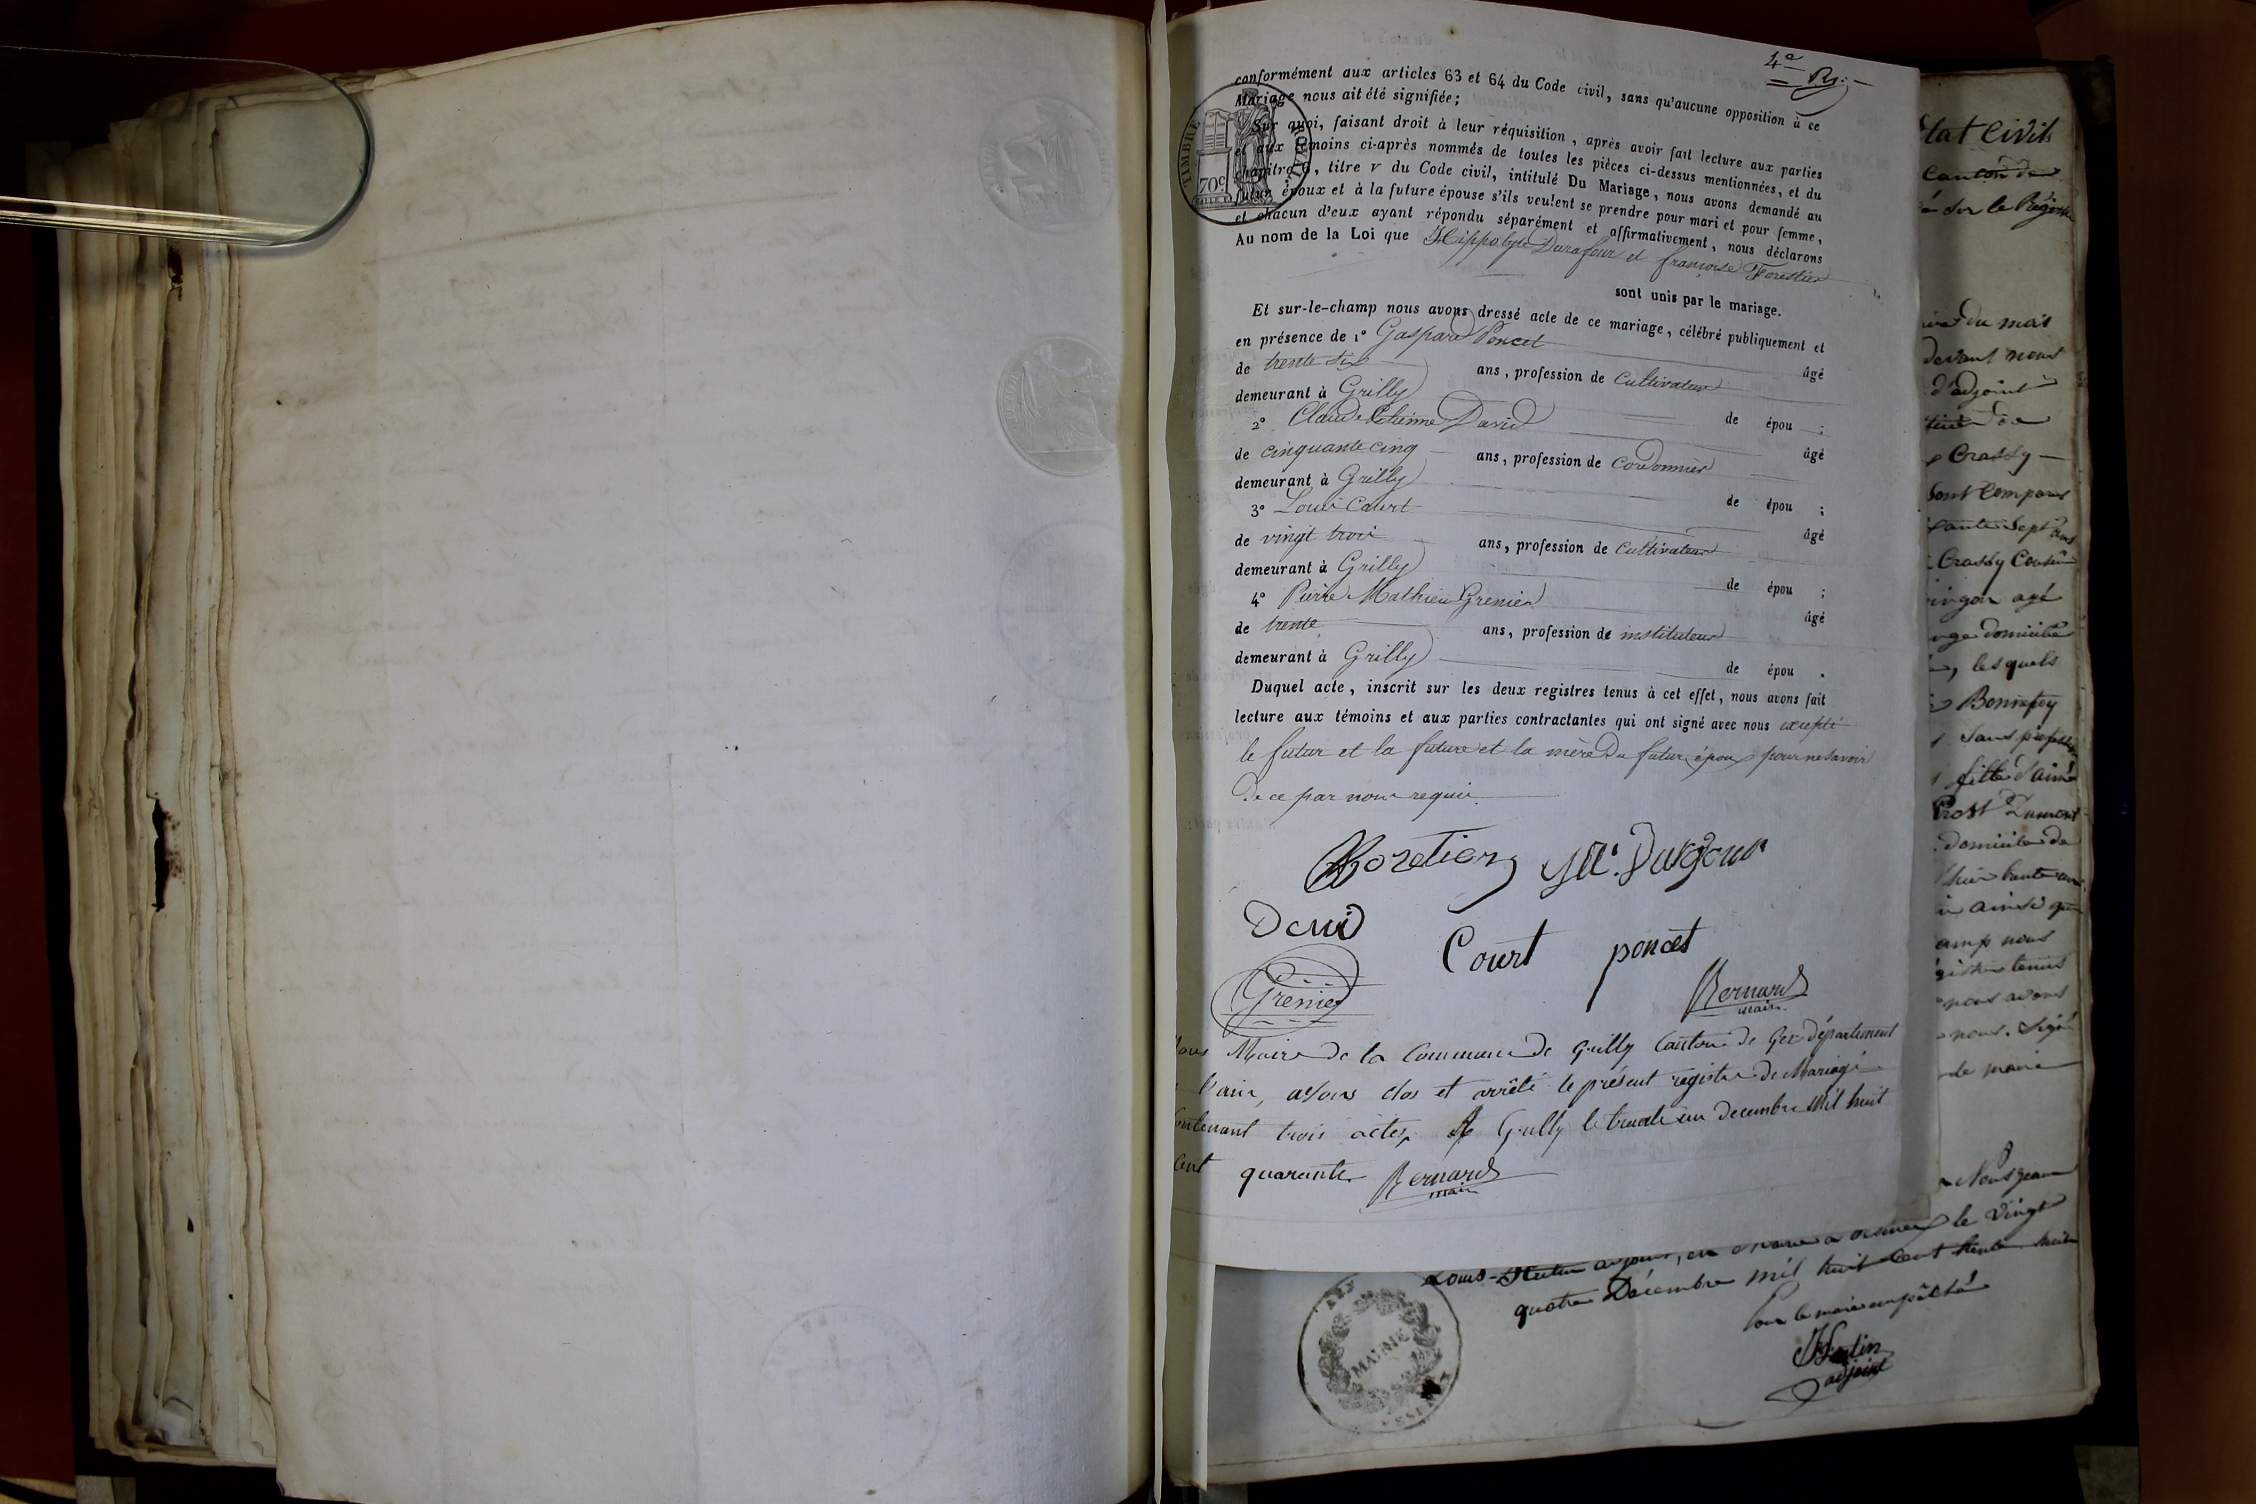 4e
conformément aux articles 63 et 64 du Code civil, sans qu'aucune opposition à ce
Mariage nous ait été signifiée;
Sur quoi, faisant droit à leur réquisition, après avoir fait lecture aux parties
et aux témoins ci-après nommés de toutes les pièces ci-dessus mentionnées, et du
chapitre 6, titre v du Code civil, intitulé Du Mariage, nous avons demandé au
futur époux et à la future épouse s'ils veulent se prendre pour mari et pour femme,
et chacun d'eux ayant répondu séparément et affirmativement, nous déclarons
Au nom de la Loi que Hippolyte Durafour et françoise Forestier
sont unis par le mariage.
TIMBRE ROYAL
70c
Et sur-le-champ nous avons dressé acte de ce mariage, célébré publiquement et
en présence de 1° Gaspard Poncet
âgé
de trente six ans, profession de Cultivateur
demeurant à Grilly
de épou ;
2° Claude Etienne David
âgé
de cinquante cinq ans, profession de Cordonnier
demeurant à Grilly
de épou ;
3° Louis Court
âgé
de vingt trois ans, profession de Cultivateur
demeurant à Grilly
de épou ;
4° Pierre Mathieu Grenier
âgé
de trente ans, profession de instituteur
demeurant à Grilly
de épou .
Duquel acte, inscrit sur les deux registres tenus à cet effet, nous avons fait
lecture aux témoins et aux parties contractantes qui ont signé avec nous excepté
le futur et la future et la mère du futur époux pour ne savoir
de ce par nous requis.
David
Court poncet
Grenier
Bernard
maire
Nous Maire de la Commune de Grilly Canton de Gex département
l'ain, avons clos et arrêté le présent registre de Mariage
contenant trois actes, A Grilly le trente un decembre mil huit
cent quarante Bernard
maire
état Civil
Canton de
sur le Régistre
du mois
devant nous
d'adjoint
Crassy
sont Comparus
sept ans
Crassy Cousin
agé
domicilié
, les quels
Bonnefoy
Sans profession
fille d'aimé
Prost Dumont
domicile de
ainsi que
nous
tenus
nous avons
nous. Signé
de mairie
Nous jean
Louis adjoint, en Mairie a le Vingt
quatre Décembre mil huit Cent trente
Pour le maire empêché
adjoint
MAIRIE